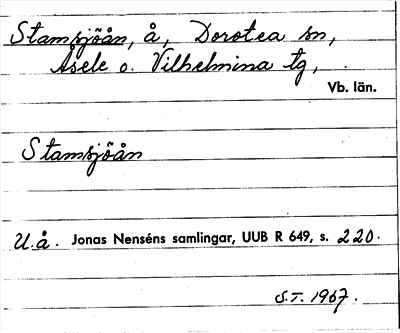 Stamsjöån, å, Dorotea sn,
Åsele o. Vilhelmina tg,
Vb. län.
Stamsjöån
U.å. Jonas Nenséns samlingar, UUB R 649, s. 220.
S.T. 1967.